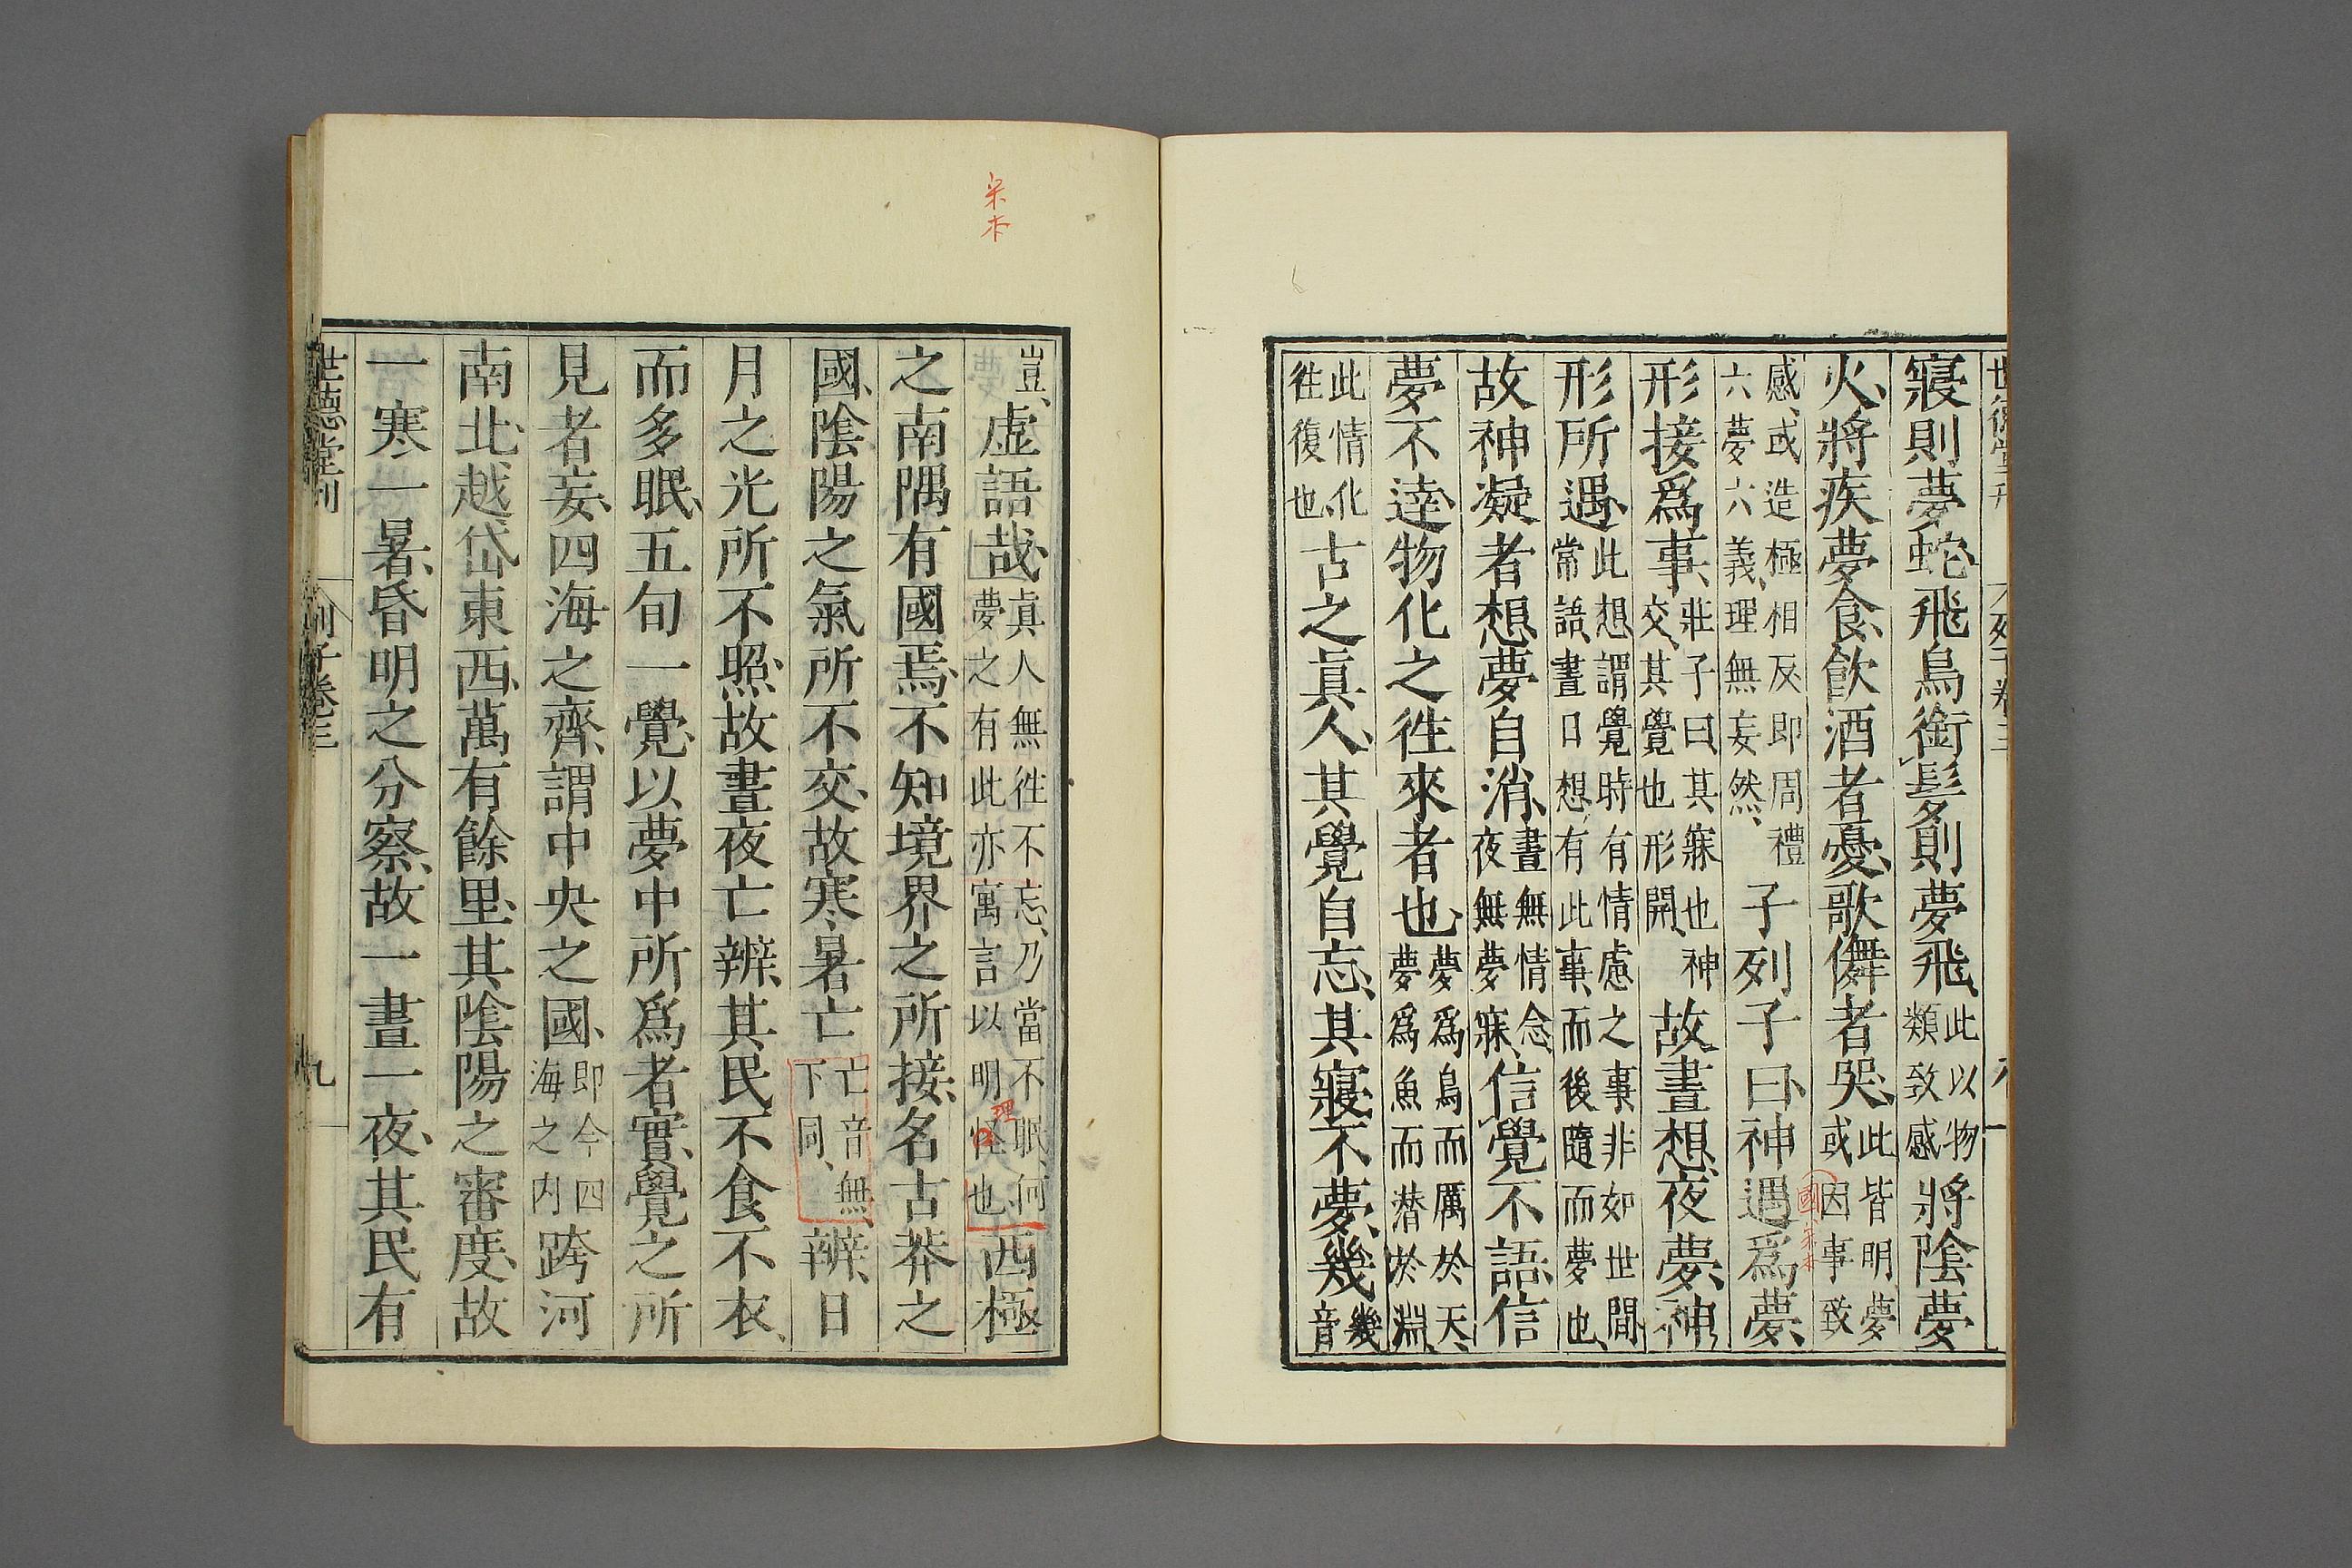 寢則夢蛇飛鳥銜髮則夢飛此以物類致感將陰夢
火將疾夢食飮酒者憂歌儛者哭此皆明夢或因事致
感或造極相反即周禮六夢六義理無妄然子列子曰神遇爲夢
形接爲事莊子曰其寐也神交其覺也形開故晝想夜夢神
形所遇此想謂覺時有情慮之事非如世間常語晝日想有此事而後隨而夢也
故神凝者想夢自消晝無情念夜無夢寐信覺不語信
夢不逹物化之徃來者也夢爲鳥而厲於天夢爲魚而潛於淵
此情化徃復也古之眞人其覺自忘其寢不夢幾幾音
豈虛語哉眞人無徃不忘乃當不眠何夢之有此亦寓言以明怪也西極
之南隅有國焉不知境界之所接名古莽之
國陰陽之氣所不交故寒暑亡亡音無下同辨日
月之光所不照故晝夜亡辨其民不食不衣
而多眠五旬一覺以夢中所爲者實覺之所
見者妄四海之齊謂中央之國即今四海之内跨河
南北越岱東西萬有餘里其陰陽之審度故
一寒一暑昏明之分察故一晝一夜其民有
世德堂刊
列子卷三
九
宋本
理
國宋本